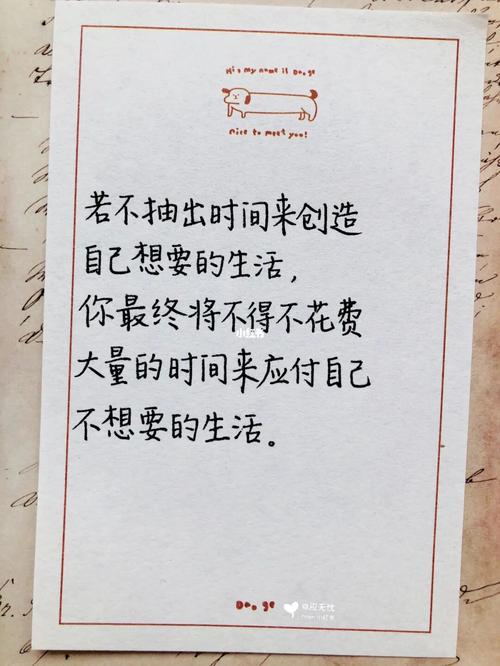 Hi's my name is Dooge
Nice to meet you!
若不抽出时间来创造
自己想要的生活，
你最终将不得不花费
小红书
大量的时间来应付自己
不想要的生活。
Dooge
@应无忧
小红书